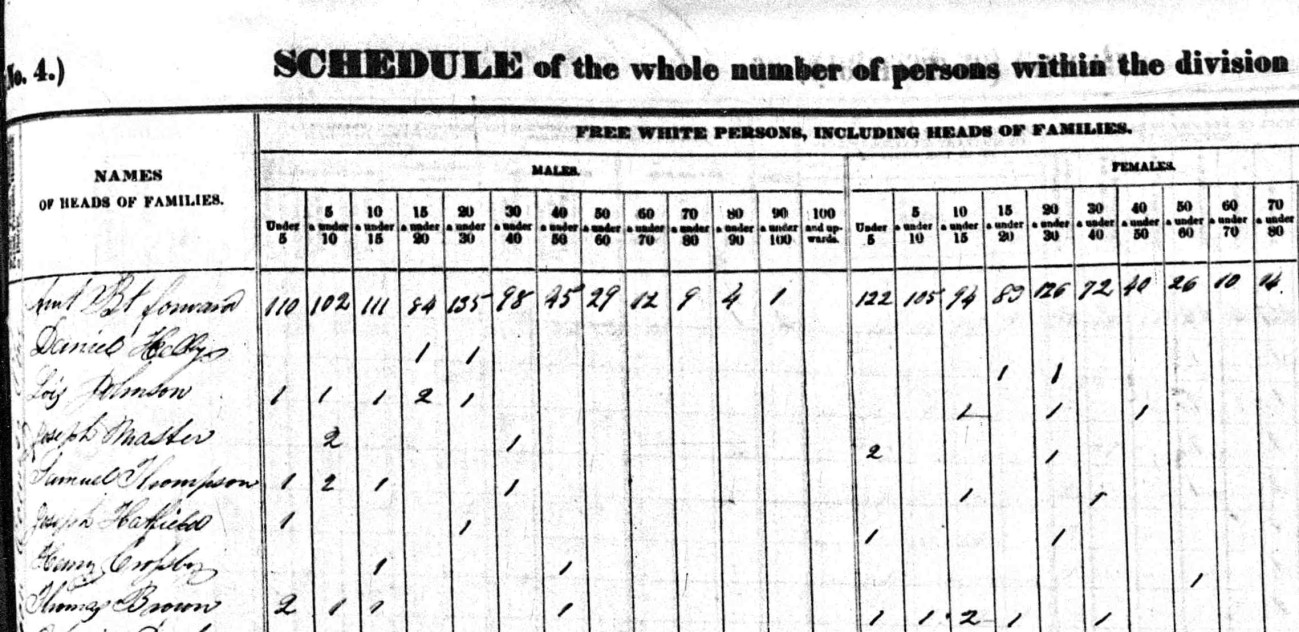 No. 4.) SCHEDULE of the whole number of persons within the division
FREE WHITE PERSONS, INCLUDING HEADS OF FAMILIES.
NAMES
OF HEADS OF FAMILIES.
MALES. FEMALES.
Under 5 5 & under 10 10 & under 15 15 & under 20 20 & under 30 30 & under 40 40 & under 50 50 & under 60 60 & under 70 70 & under 80 80 & under 90 90 & under 100 100 and upwards. Under 5 5 & under 10 10 & under 15 15 & under 20 20 & under 30 30 & under 40 40 & under 50 50 & under 60 60 & under 70 70 & under 80
Amt Bt forward 110 102 111 84 135 98 45 29 12 9 4 1 122 105 94 89 126 72 40 26 10 14
Daniel 1 1 1 1
Lois Johnson 1 1 1 2 1 1 1 1
Joseph Master 2 1 2 1
Samuel Thompson 1 2 1 1 1 1
Joseph Hatfield 1 1 1 1
Henry Crosby 1 1 1
Thomas Brown 2 1 1 1 1 1 2 1 1